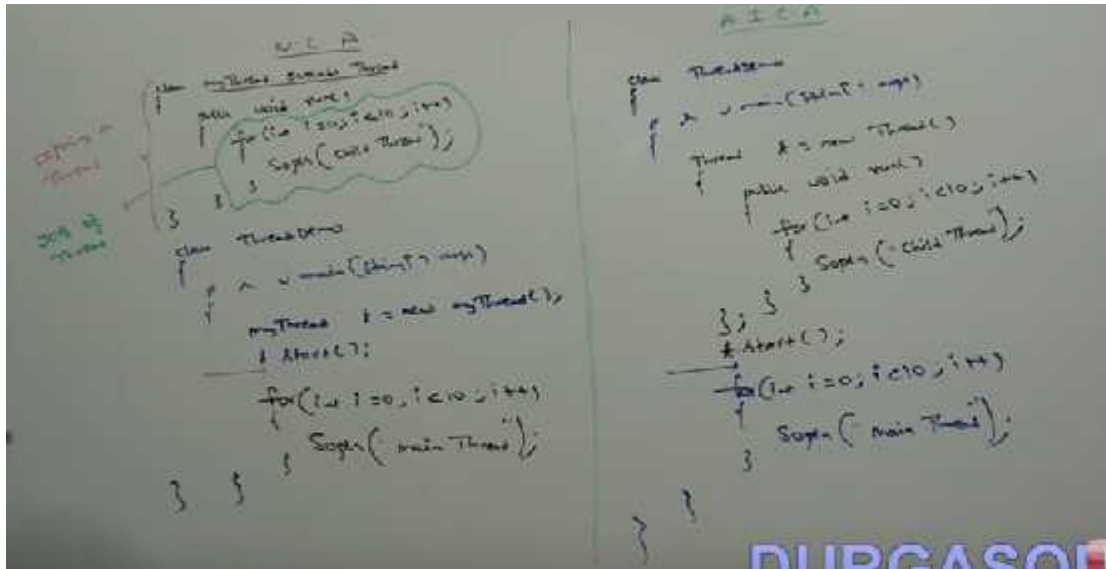 N C A
class myThread extends Thread
{
public void run()
{
for(int i=0; i<10; i++)
{
Sopln("Child Thread");
}
}
}
Thread
Job of
Thread
class ThreadDemo
{
p s v main(String[] args)
{
myThread t = new myThread();
t.start();
for(int i=0; i<10; i++)
{
Sopln("main Thread");
}
}
}
A I C A
class ThreadDemo
{
p s v main(String[] args)
{
Thread t = new Thread()
{
public void run()
{
for(int i=0; i<10; i++)
{
Sopln("Child Thread");
}
}
};
t.start();
for(int i=0; i<10; i++)
{
Sopln("main Thread");
}
}
}
DURGASOF